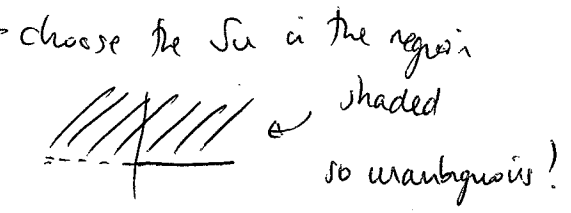 - choose the √u in the region
shaded
so unambiguous!